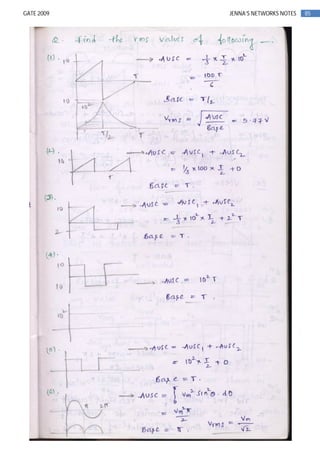 GATE 2009 JENNA'S NETWORKS NOTES 85
Q. Find the rms values of following —.
(1). 10 → AUSC = 1/3 × T/2 × 10²
T = 100.T / 6
10 Base = T/2
10² Vrms = √(AUSC / Base) = 5.77 V
T/2 T
(2). → AUSC = AUSC₁ + AUSC₂
10 = 1/3 × 100 × T/2 + 0
T Base = T.
(3).
10 → AUSC = AUSC₁ + AUSC₂
= 1/3 × 10² × T/2 + 2² T
2 Base = T.
(4).
10
10 → AUSC = 10² T
Base = T.
10²
(5). → AUSC = AUSC₁ + AUSC₂
= 10² × T/2 + 0
Base = T.
(6). → AUSC = ∫ Vm² sin²θ . dθ
π 2π = Vm² π / 2
Base = π. Vrms = Vm / √2